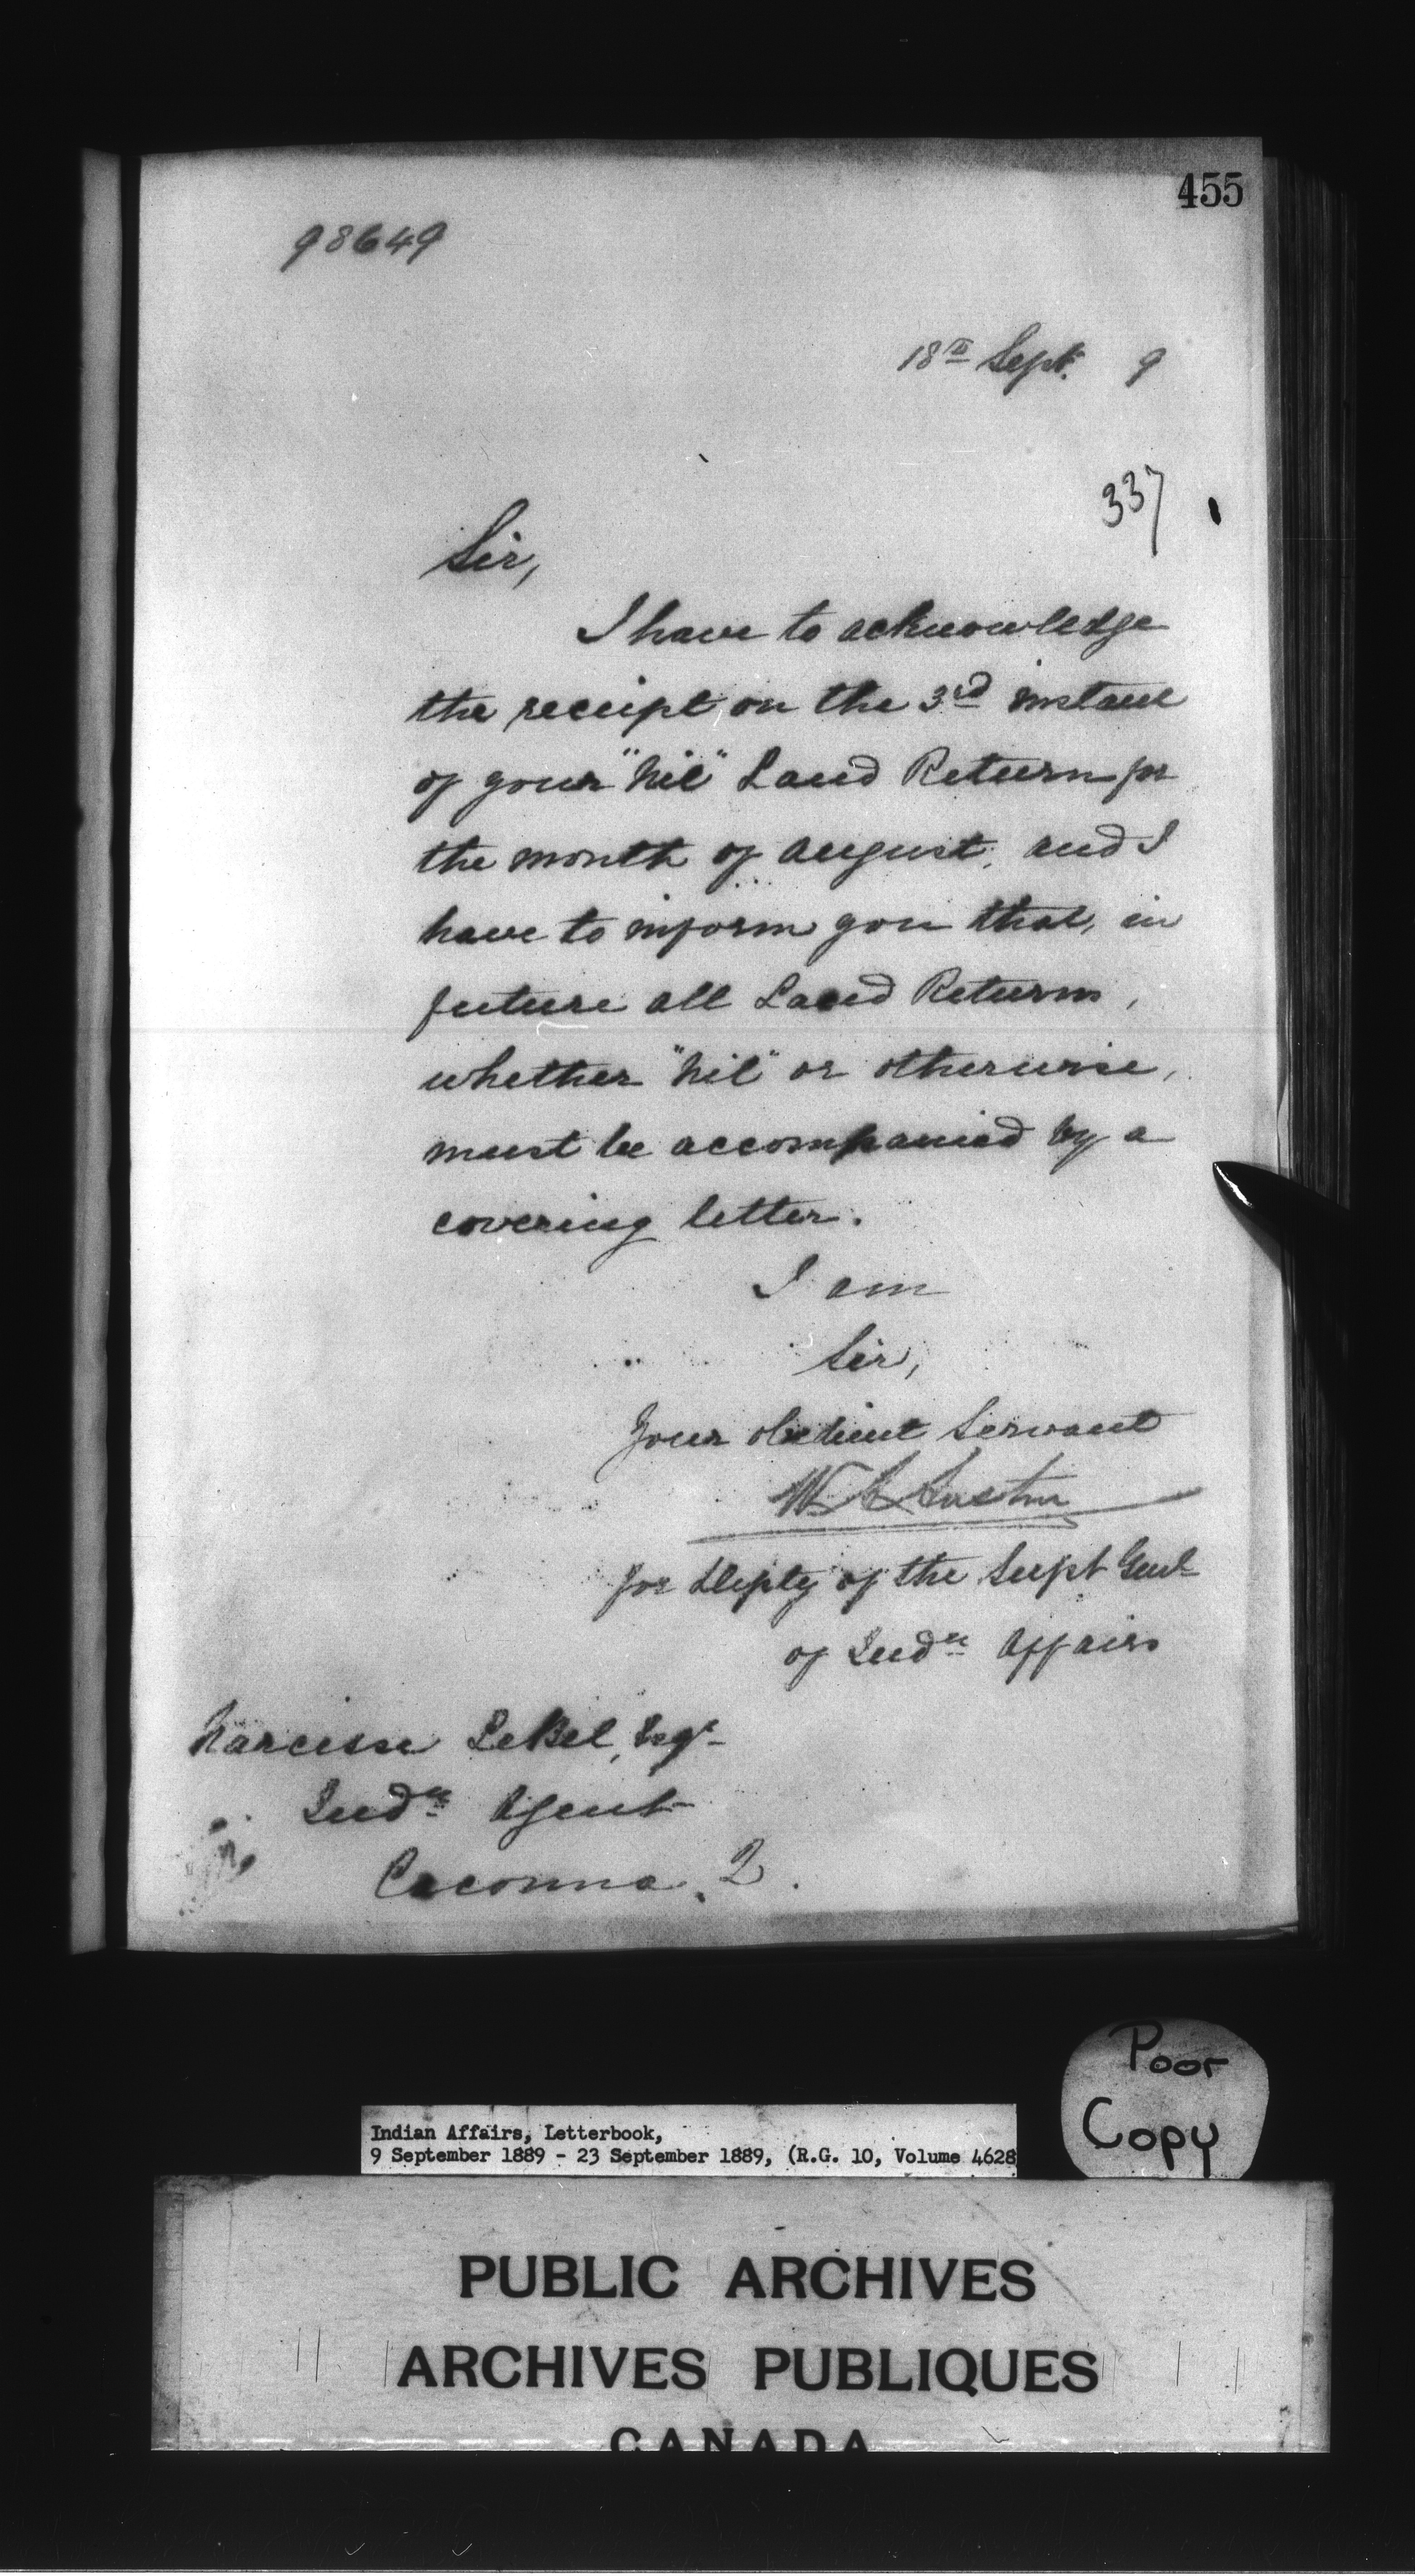 455
98649
18th Sept. 9
337
Sir,
I have to acknowledge
the receipt, on the 3rd instant
of your "Nil" Land Return for
the month of August, and I
have to inform you that, in
future all Land Returns,
whether "Nil" or otherwise,
must be accompanied by a
covering letter.
I am
Sir,
Your obedient Servant
W. A. Austin
for Depty of the Supt Genl
of Indn Affairs
Narcisse LeBel, Esqr
Indn Agent
Cacouna, Q.
Poor
Copy
Indian Affairs, Letterbook,
9 September 1889 - 23 September 1889, (R.G. 10, Volume 4628
PUBLIC ARCHIVES
ARCHIVES PUBLIQUES
CANADA